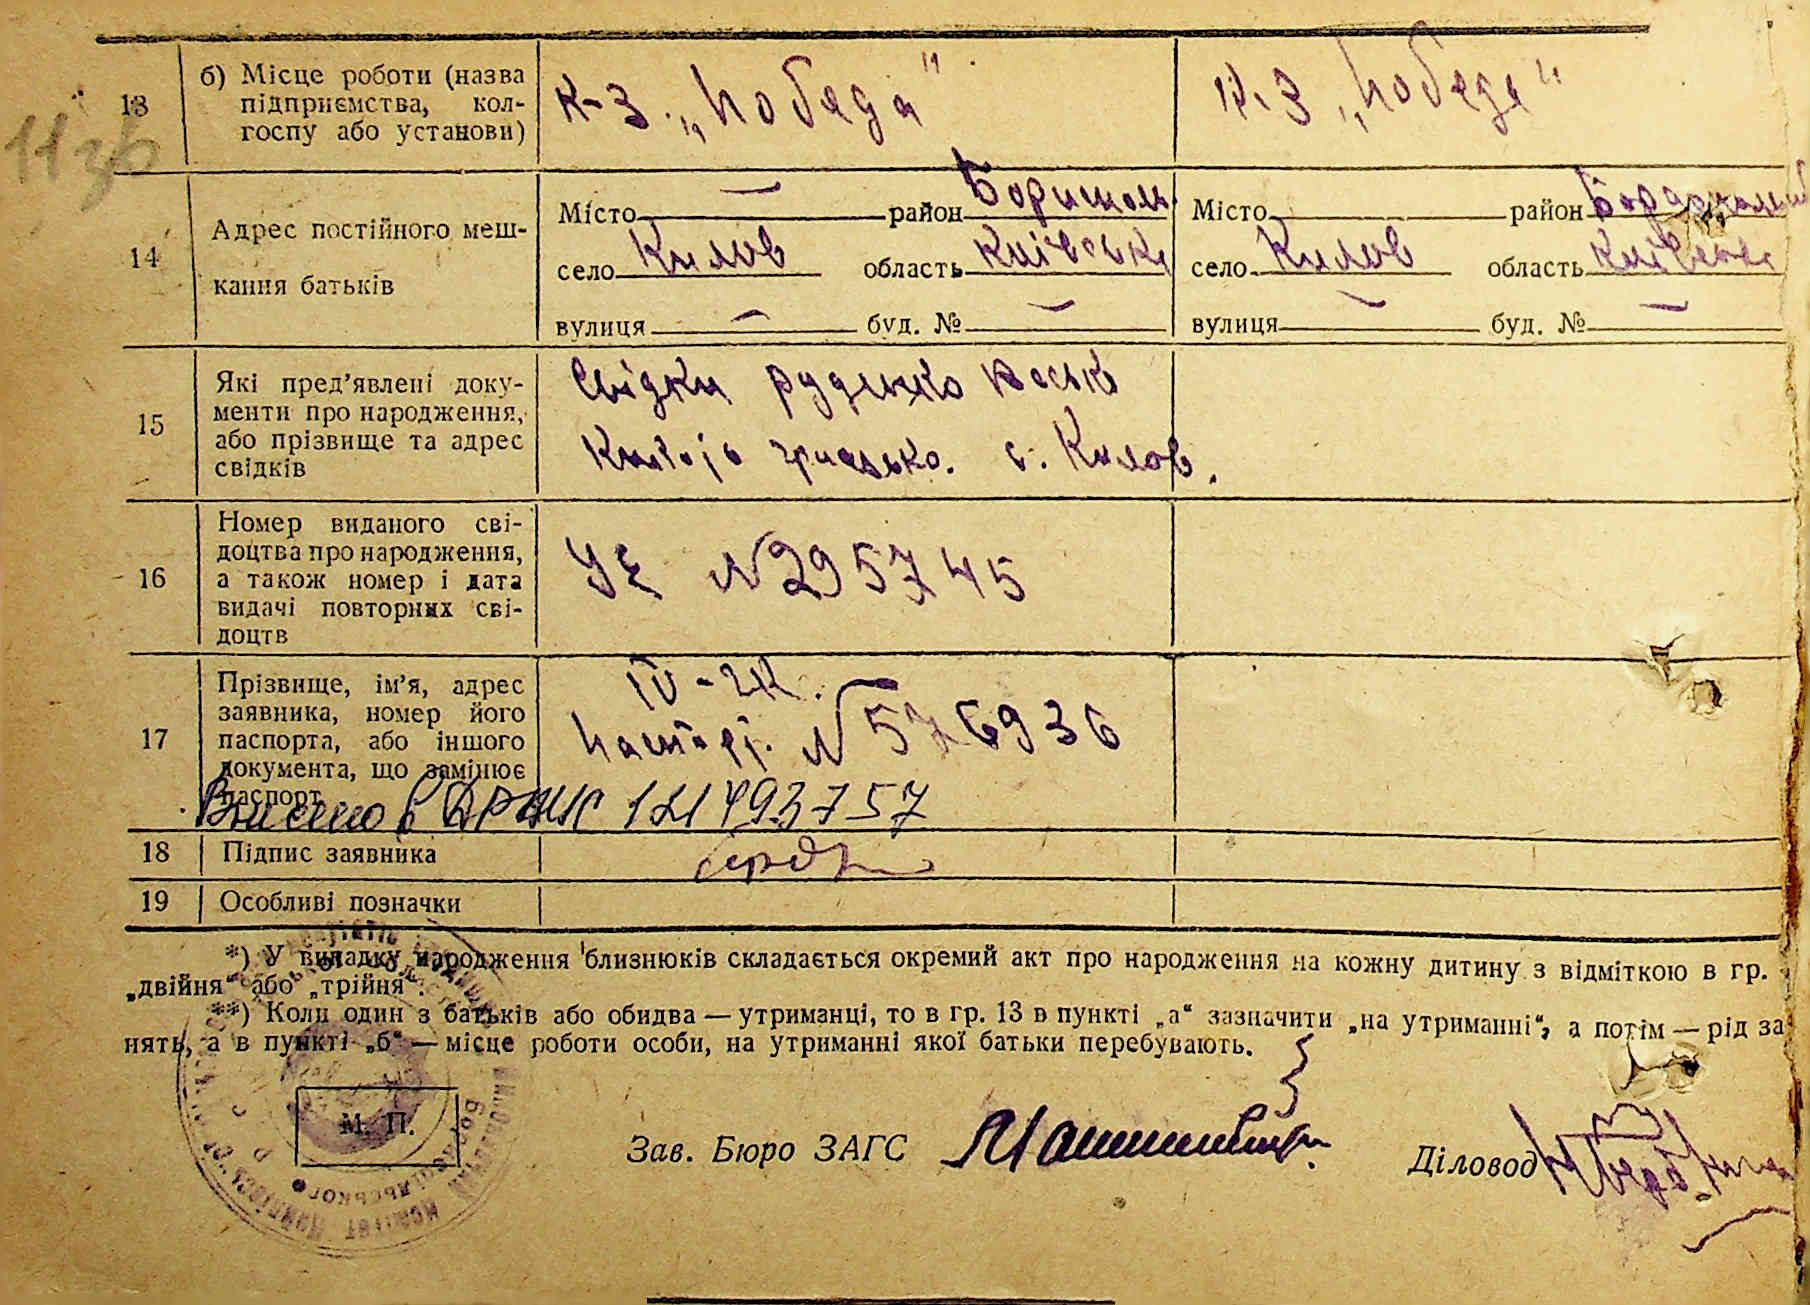 11 зв
13
б) Місце роботи (назва
підприємства, кол-
госпу або установи)
к-з „Победа"
к-з „Победа"
14
Адрес постійного меш-
кання батьків
Місто — район Боришоль
село Килов область Київська
вулиця — буд. № —
Місто район
село Килов область Київська
вулиця — буд. № —
15
Які пред'явлені доку-
менти про народження,
або прізвище та адрес
свідків
Свідки Руденко
с. Килов.
16
Номер виданого сві-
доцтва про народження,
а також номер і дата
видачі повторних сві-
доцтв
№ 295745
17
Прізвище, ім'я, адрес
заявника, номер його
паспорта, або іншого
документа, що замінює
паспорт
IV-
№ 576936
Внесено в ДРАЦС 121493757
18
Підпис заявника
19
Особливі позначки
*) У випадку народження близнюків складається окремий акт про народження на кожну дитину з відміткою в гр.
„двійня" або „трійня".
**) Коли один з батьків або обидва — утриманці, то в гр. 13 в пункті „а" зазначити „на утриманні", а потім — рід за
нять, а в пункті „б" — місце роботи особи, на утриманні якої батьки перебувають.
М. П.
Зав. Бюро ЗАГС
Діловод